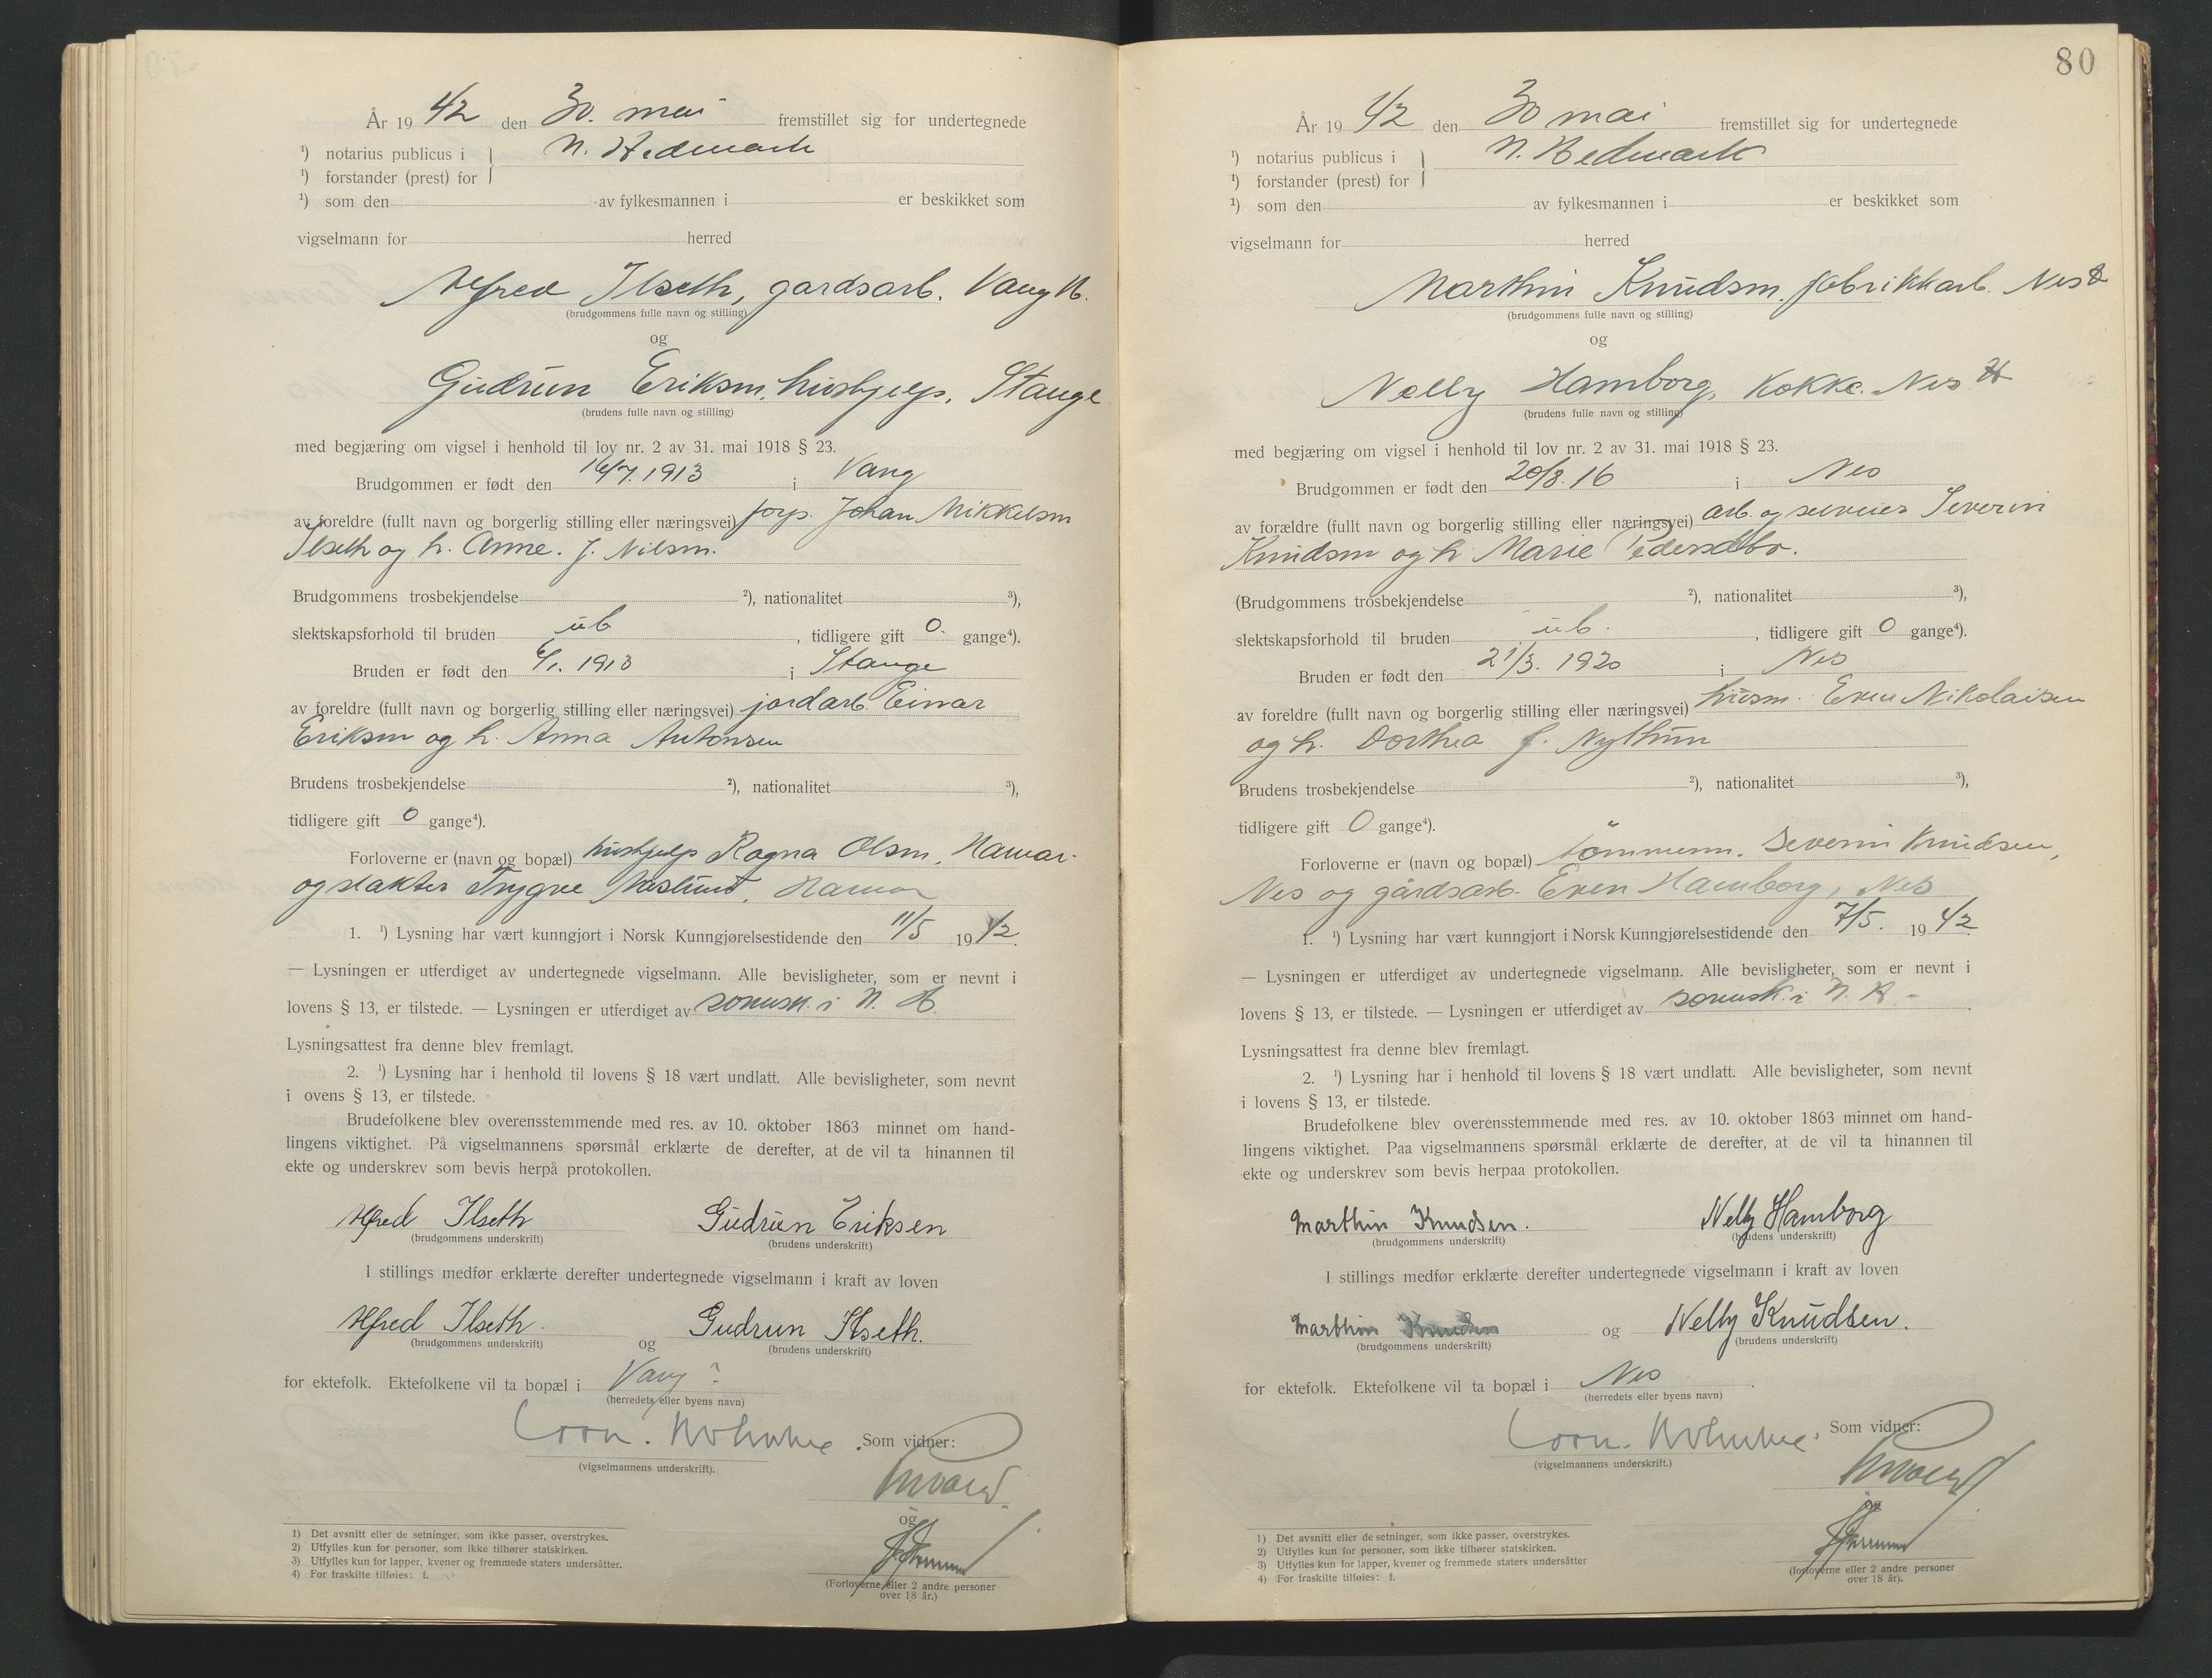 År 19 42 den 30. mai fremstillet sig for undertegnede
¹) notarius publicus i } N. Hedmark
¹) forstander (prest) for
¹) som den av fylkesmannen i er beskikket som
vigselmann for herred
Alfred Ilseth, gardsarb. Vang H.
(brudgommens fulle navn og stilling)
og
Gudrun Eriksen, hushjelp, Stange
(brudens fulle navn og stilling)
med begjæring om vigsel i henhold til lov nr. 2 av 31. mai 1918 § 23.
Brudgommen er født den 1913 i Vang
av foreldre (fullt navn og borgerlig stilling eller næringsvei) forp. Johan Mikkelsen
Ilseth og h. Anne. f. Nilsen.
Brudgommens trosbekjendelse ²), nationalitet ³),
slektskapsforhold til bruden ub , tidligere gift 0. gange⁴).
Bruden er født den 6/1. 1913 i Stange
av foreldre (fullt navn og borgerlig stilling eller næringsvei) jordarb. Einar
Eriksen og h. Anna Antonsen
Brudens trosbekjendelse ²), nationalitet ³),
tidligere gift 0 gange⁴).
Forloverne er (navn og bopæl) hushjelp Ragna Olsen, Hamar
og slakter Trygve Hamar
1. ¹) Lysning har vært kunngjort i Norsk Kunngjørelsestidende den 11/5 19 42.
— Lysningen er utferdiget av undertegnede vigselmann. Alle bevisligheter, som er nevnt i
lovens § 13, er tilstede. — Lysningen er utferdiget av sorensk. i N. H.
Lysningsattest fra denne blev fremlagt.
2. ¹) Lysning har i henhold til lovens § 18 vært undlatt. Alle bevisligheter, som nevnt
i ovens § 13, er tilstede.
Brudefolkene blev overensstemmende med res. av 10. oktober 1863 minnet om hand-
lingens viktighet. På vigselmannens spørsmål erklærte de derefter, at de vil ta hinannen til
ekte og underskrev som bevis herpå protokollen.
Alfred Ilseth Gudrun Eriksen
(brudgommens underskrift) (brudens underskrift)
I stillings medfør erklærte derefter undertegnede vigselmann i kraft av loven
Alfred Ilseth. og Gudrun Ilseth.
(brudgommens underskrift) (brudens underskrift)
for ektefolk. Ektefolkene vil ta bopæl i Vang ?
(herredets eller byens navn)
Som vidner:
(vigselmannens underskrift).
og
(Forloverne eller 2 andre personer
over 18 år.)
1) Det avsnitt eller de setninger, som ikke passer, overstrykes.
2) Utfylles kun for personer, som ikke tilhører statskirken.
3) Utfylles kun for lapper, kvener og fremmede staters undersåtter.
4) For fraskilte tilføies: f.
80
År 19 42 den 30 mai fremstillet sig for undertegnede
¹) notarius publicus i } N. Hedmark
¹) forstander (prest) for
¹) som den av fylkesmannen i er beskikket som
vigselmann for herred
Marthin Knudsen, fabrikkarb. Nes H
(brudgommens fulle navn og stilling)
og
Nelly Hamborg, kokke. Nes H
(brudens fulle navn og stilling)
med begjæring om vigsel i henhold til lov nr. 2 av 31. mai 1918 § 23.
Brudgommen er født den 20/8. 16 i Nes
av forældre (fullt navn og borgerlig stilling eller næringsvei) arb. og selveier Severin
Knudsen og h. Marie Pedersdtr.
(Brudgommens trosbekjendelse ²), nationalitet ³),
slektskapsforhold til bruden ub. , tidligere gift 0 gange⁴).
Bruden er født den 21/3. 1920 i Nes
av foreldre (fullt navn og borgerlig stilling eller næringsvei) husm. Even Nikolaisen
og h. Dorthea f. Nylthun
Brudens trosbekjendelse ²), nationalitet ³),
tidligere gift 0 gange⁴).
Forloverne er (navn og bopæl) tömmerm. Severin Knudsen,
Nes og gårdsarb. Even Hamborg, Nes
1. ¹) Lysning har vært kunngjort i Norsk Kunngjørelsestidende den 7/5. 19 42
— Lysningen er utferdiget av undertegnede vigselmann. Alle bevisligheter, som er nevnt i
lovens § 13, er tilstede. — Lysningen er utferdiget av sorensk. i N. H. -
Lysningsattest fra denne blev fremlagt.
2. ¹) Lysning har i henhold til lovens § 18 vært undlatt. Alle bevisligheter, som nevnt
i lovens § 13, er tilstede.
Brudefolkene blev overensstemmende med res. av 10. oktober 1863 minnet om hand-
lingens viktighet. Paa vigselmannens spørsmål erklærte de derefter, at de vil ta hinannen til
ekte og underskrev som bevis herpaa protokollen.
Marthin Knudsen. Nelly Hamborg
(brudgommens underskrift) (brudens underskrift)
I stillings medfør erklærte derefter undertegnede vigselmann i kraft av loven
Marthin Knudsen og Nelly Knudsen.
(brudgommens underskrift) (brudens underskrift)
for ektefolk. Ektefolkene vil ta bopæl i Nes
(herredets eller byens navn)
Som vidner:
(vigselmannens underskrift.)
og
(forloverne eller 2 andre personer
over 18 år).
1) Det avsnitt eller de setninger, som ikke passer, overstrykes.
2) Utfylles kun for personer, som ikke tilhører statskirken.
3) Utfylles kun for lapper, kvener og fremmede staters undersåtter
4) For fraskilte tilføies: f.